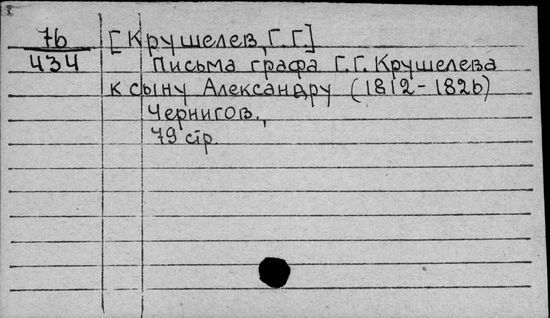 7б [Крушелев, Г.Г.]
434 Письма графа Г.Г. Крушелева
к сыну Александру (1812-1826)
Чернигов.,
79 стр.